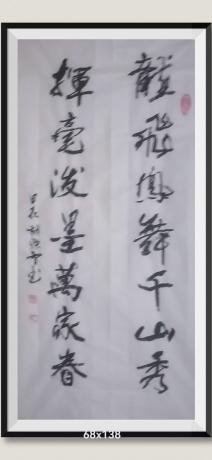 龍飛鳳舞千山秀
揮毫潑墨萬家春
68x138